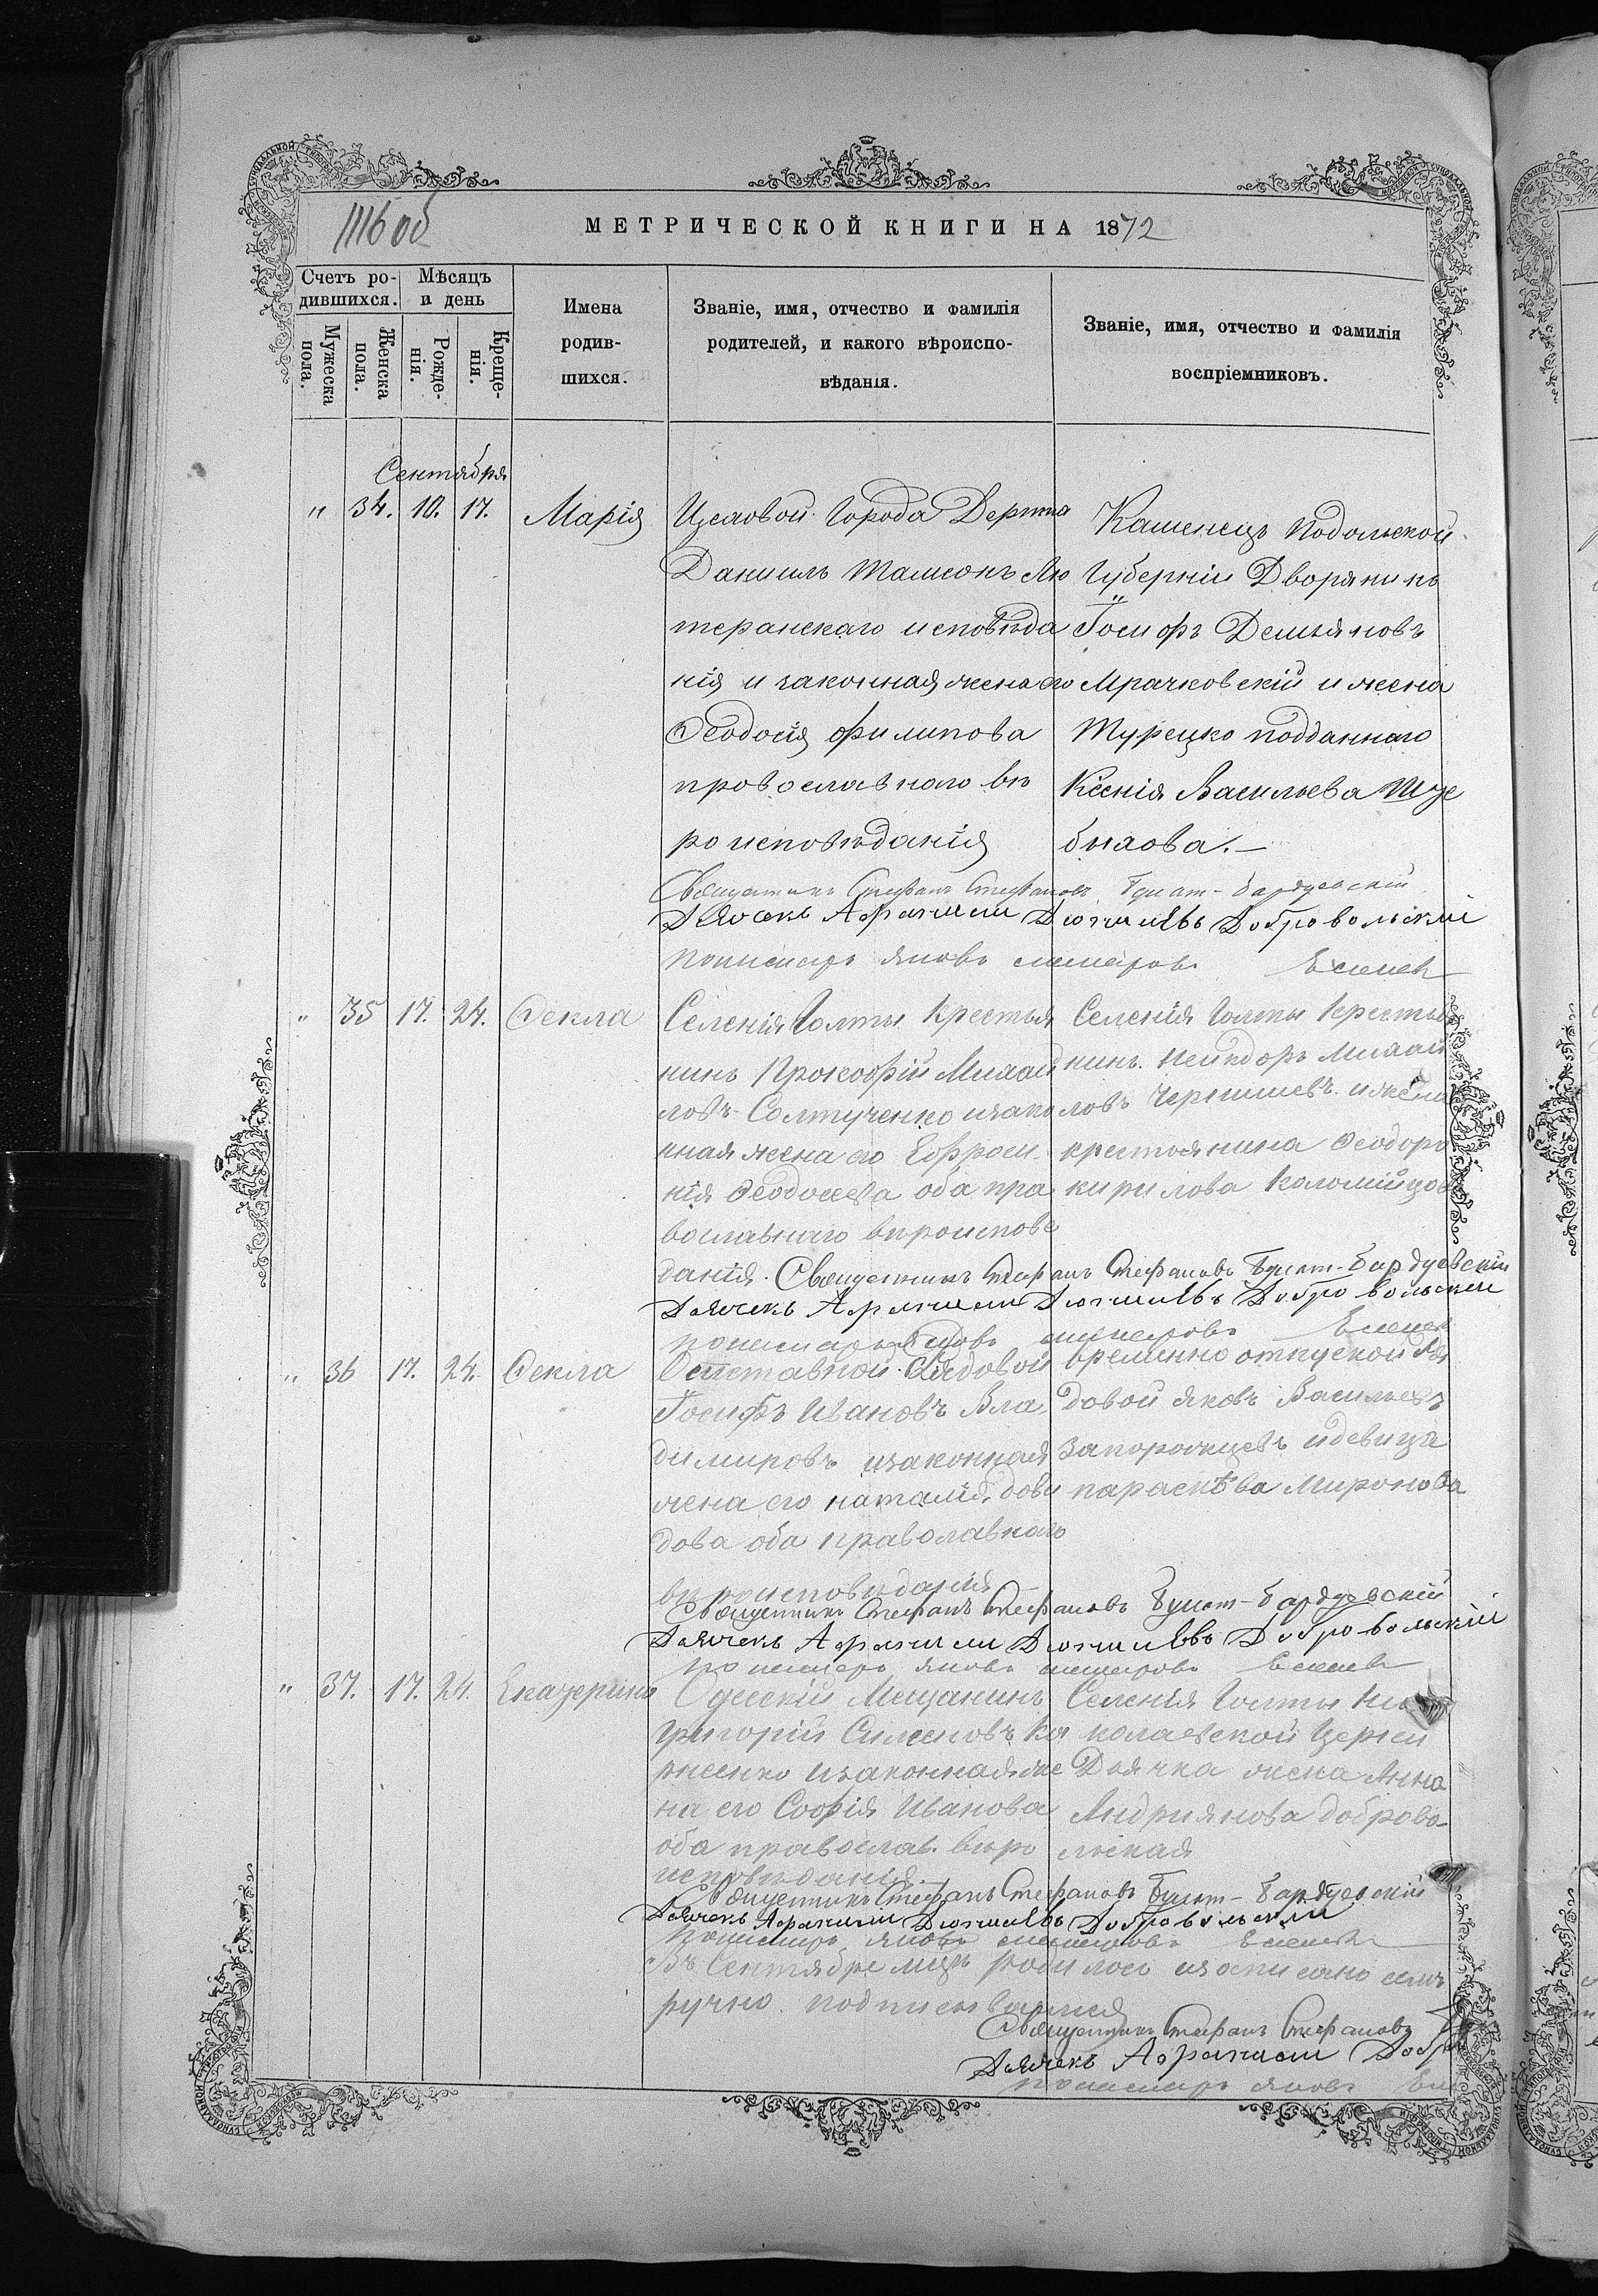 1116 об
МЕТРИЧЕСКОЙ КНИГИ НА 1872
Счетъ ро-
дившихся.
Мѣсяцъ
и день
Мужеска
пола.
Женска
пола.
Рожде-
нія.
Креще-
нія.
Имена
родив-
шихся.
Званіе, имя, отчество и фамилія
родителей, и какого вѣроиспо-
вѣданія.
Званіе, имя, отчество и фамилія
воспріемниковъ.
Сентября
" 34. 10. 17. Марія
Цеховой города Дерпта
Даниилъ Тамсонъ Лю
теранскаго исповѣда
нія и законная жена его
Ѳеодосія Филипова
провославнаго вѣ
роисповѣданія
Каменецъ Подольской
Губерніи Дворянинъ
Іосифъ Демьяновъ
Мрачковскій и жена
Турецко подданнаго
Ксенія Васильева
бынова.—
Священникъ Стефанъ Стефановъ Бунят-Бардуевскій
Дьячекъ Афанасій Добровольскій
Пономарь Яковъ
" 35 17. 24. Ѳекла
Селенія Голты Крестья
нинъ Прокофій Михай
ловъ Солтученко и зако
нная жена его Ефроси
нія Ѳеодосева оба пра
вославнаго вѣроиспове
данія.
Селенія Голты Крестья
нинъ Михай
ловъ Чернышевъ и жена
крестьянина Ѳеодора
Кирилова Коломійцов
Священникъ Стефанъ Стефановъ Бунят-Бардуевскій
Дьячекъ Афанасій Добровольскій
Пономарь Яковъ
" 36 17. 24. Ѳекла
Отставной Рядовой
Іосифъ Ивановъ Вла
димировъ и законная
жена его Наталія Дови
дова оба праволавнаго
вѣроисповѣданія
Временно отпускной Ря
довой Яковъ Васильевъ
Запорожцевъ и девица
Параскѣва Миронова
Священникъ Стефанъ Стефановъ Бунят-Бардуевскій
Дьячекъ Афанасій Добровольскій
Пономарь Яковъ
" 37. 17. 24. Екатерина
Одесскій Мещанинъ
Григорій Симеоновъ Ка
рпенко и законная же
на его Софія Иванова
оба православ. вѣро
исповѣданія.
Селенія Голты Ни
колаевской Церкви
Дьячка жена Анна
Андриянова Доброво-
льская
Священникъ Стефанъ Стефановъ Бунят-Бардуевскій
Дьячекъ Афанасій Добровольскій
Пономарь Яковъ
Въ Сентябре мцѣ родилось и записано
ручно подписываемся
Священникъ Стефанъ Стефановъ
Дьячекъ Афанасій Добр
Пономарь Яковъ